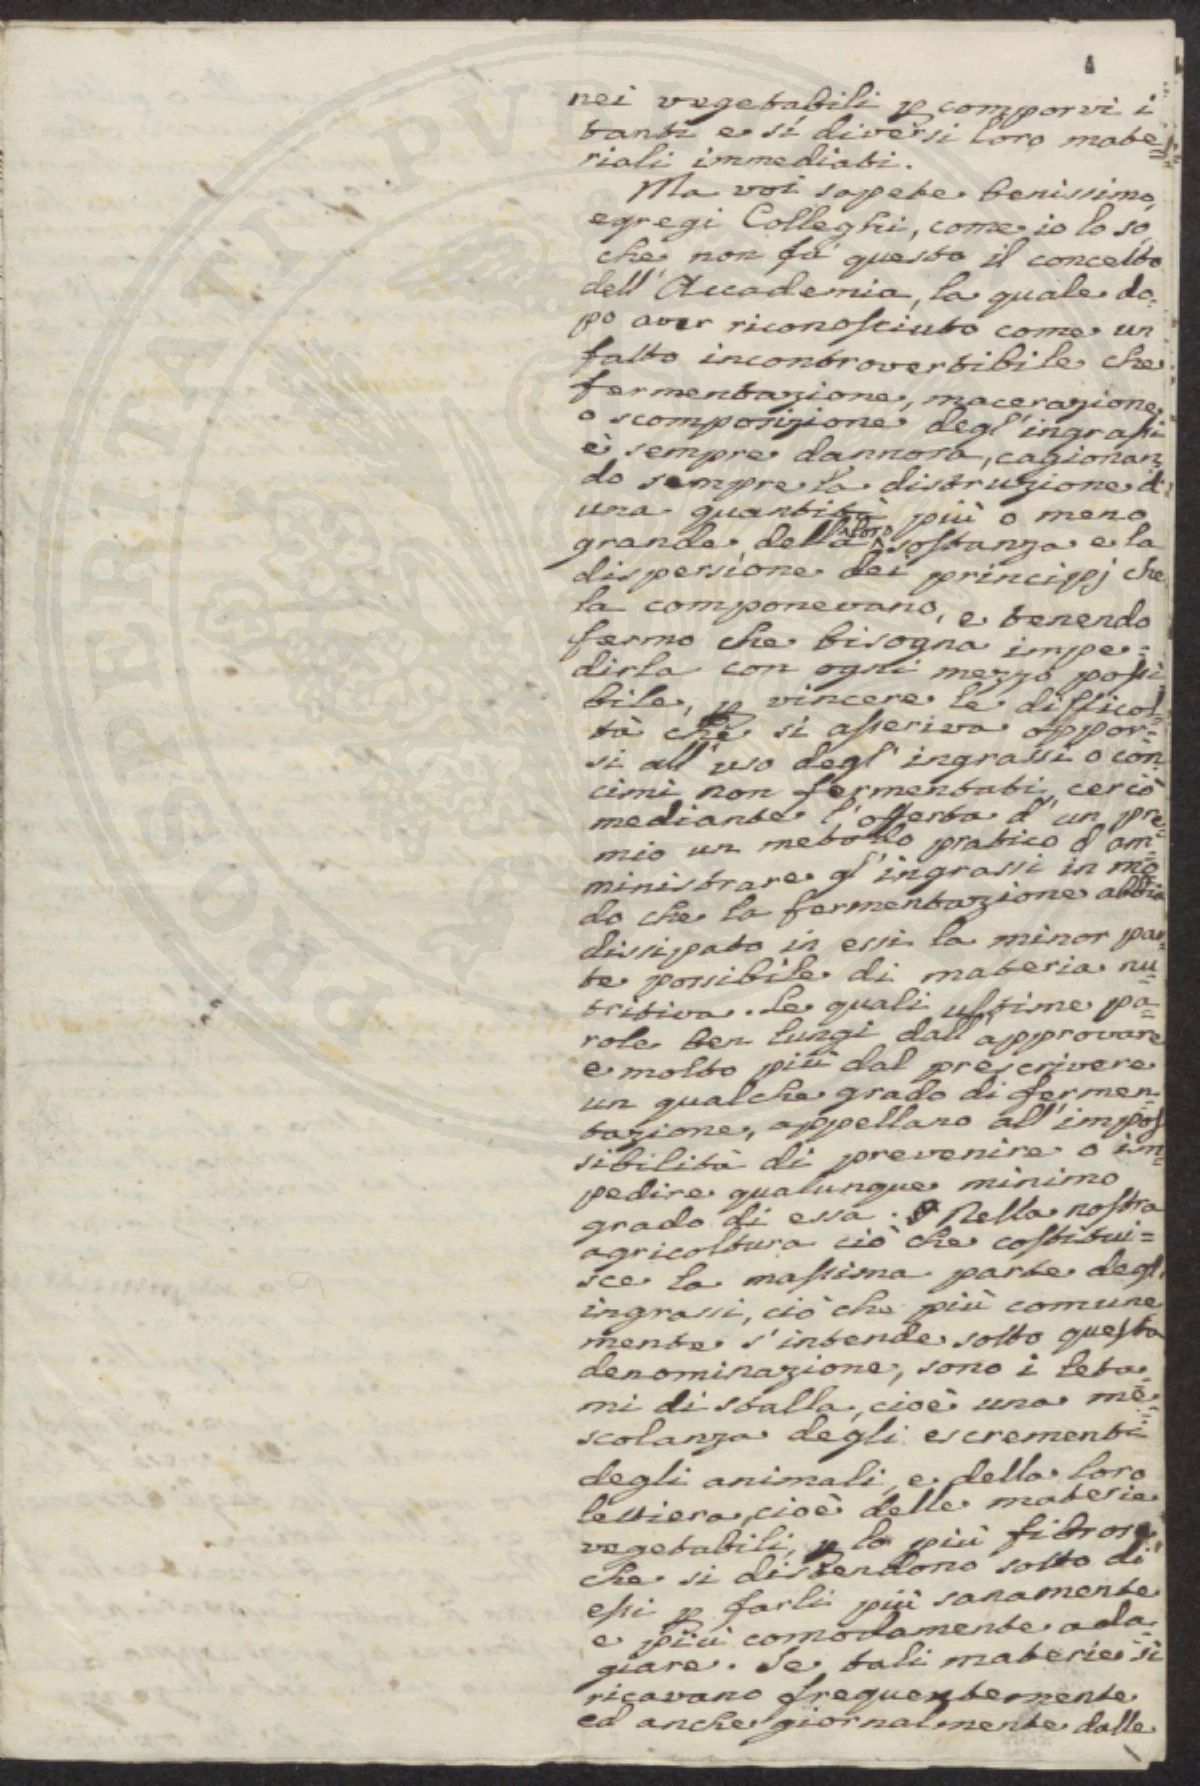 nei vegetabili p comporvi i
tanti e sì diversi loro mate=
riali immediati.
Ma voi sapete benissimo,
egregi Colleghi, come io lo so,
che non fù questo il concetto
dell'Accademia, la quale do=
po aver riconosciuto come un
fatto incontrovertibile che
fermentazione, macerazione,
o scomposizione degl'ingrassi
è sempre dannosa, cagionan=
do sempre la distruzione di
una quantità più o meno
grande della loro sostanza e la
dispersione dei principj che
la componevano, e tenendo
fermo che bisogna impe=
dirla con ogni mezzo possi
bile, p vincere le difficol=
tà che si asseriva oppor=
si all'uso degl'ingrassi o con
cimi non fermentati, cercò
mediante l'offerta d'un pre=
mio un metodo pratico d'am=
ministrare gl'ingrassi in mo=
do che la fermentazione abbia
dissipato in essi la minor par=
te possibile di materia nu=
tritiva. Le quali ultime pa=
role ben lungi dall'approvare
e molto più dal prescrivere
un qualche grado di fermen=
tazione, appellano all'impos
sibilità di prevenire o im=
pedire qualunque minimo
grado di essa. Nella nostra
agricoltura ciò che costitui=
sce la massima parte degl'
ingrassi, ciò che più comune
mente s'intende sotto questa
denominazione, sono i leta=
mi di stalla, cioè una me=
scolanza degli escrementi
degli animali, e della loro
lettiera, cioè delle materie
vegetabili, p lo più fibrose,
che si distendono sotto di
essi p farli più sanamente
e più comodamente ada=
giare. Se tali materie si
ricavano frequentemente
ed anche giornalmente dalle
PROSPERITATI PVBLICAE